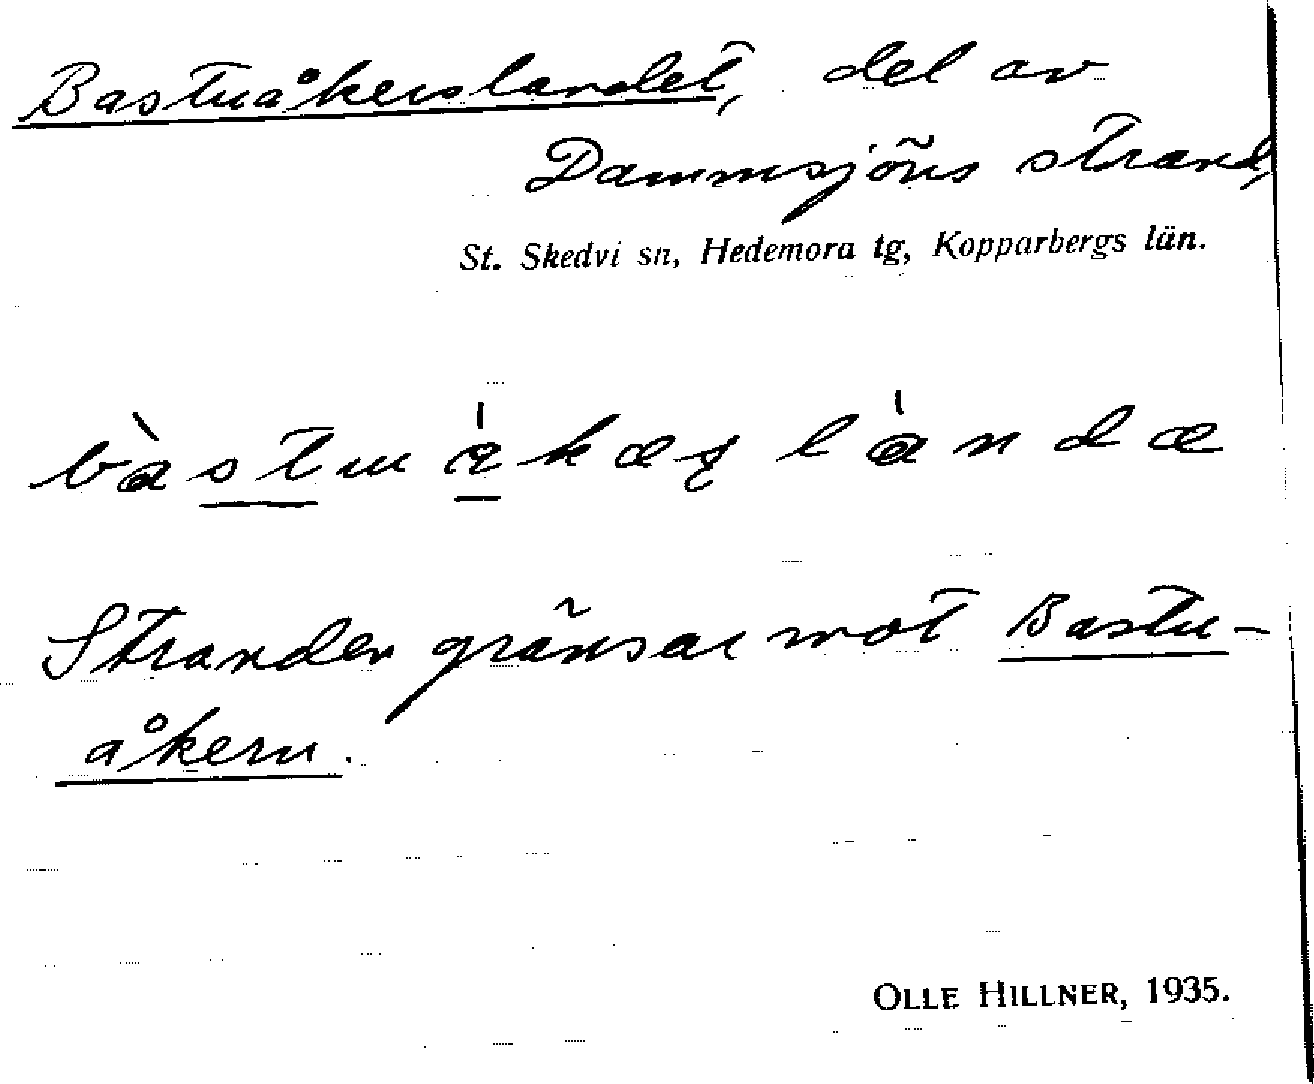 Bastuåkerslandet, del av
Dammsjöns strand,
St. Skedvi sn, Hedemora tg, Kopparbergs län.
Stranden gränsar mot Bastu-
åkern.
OLLE HILLNER, 1935.